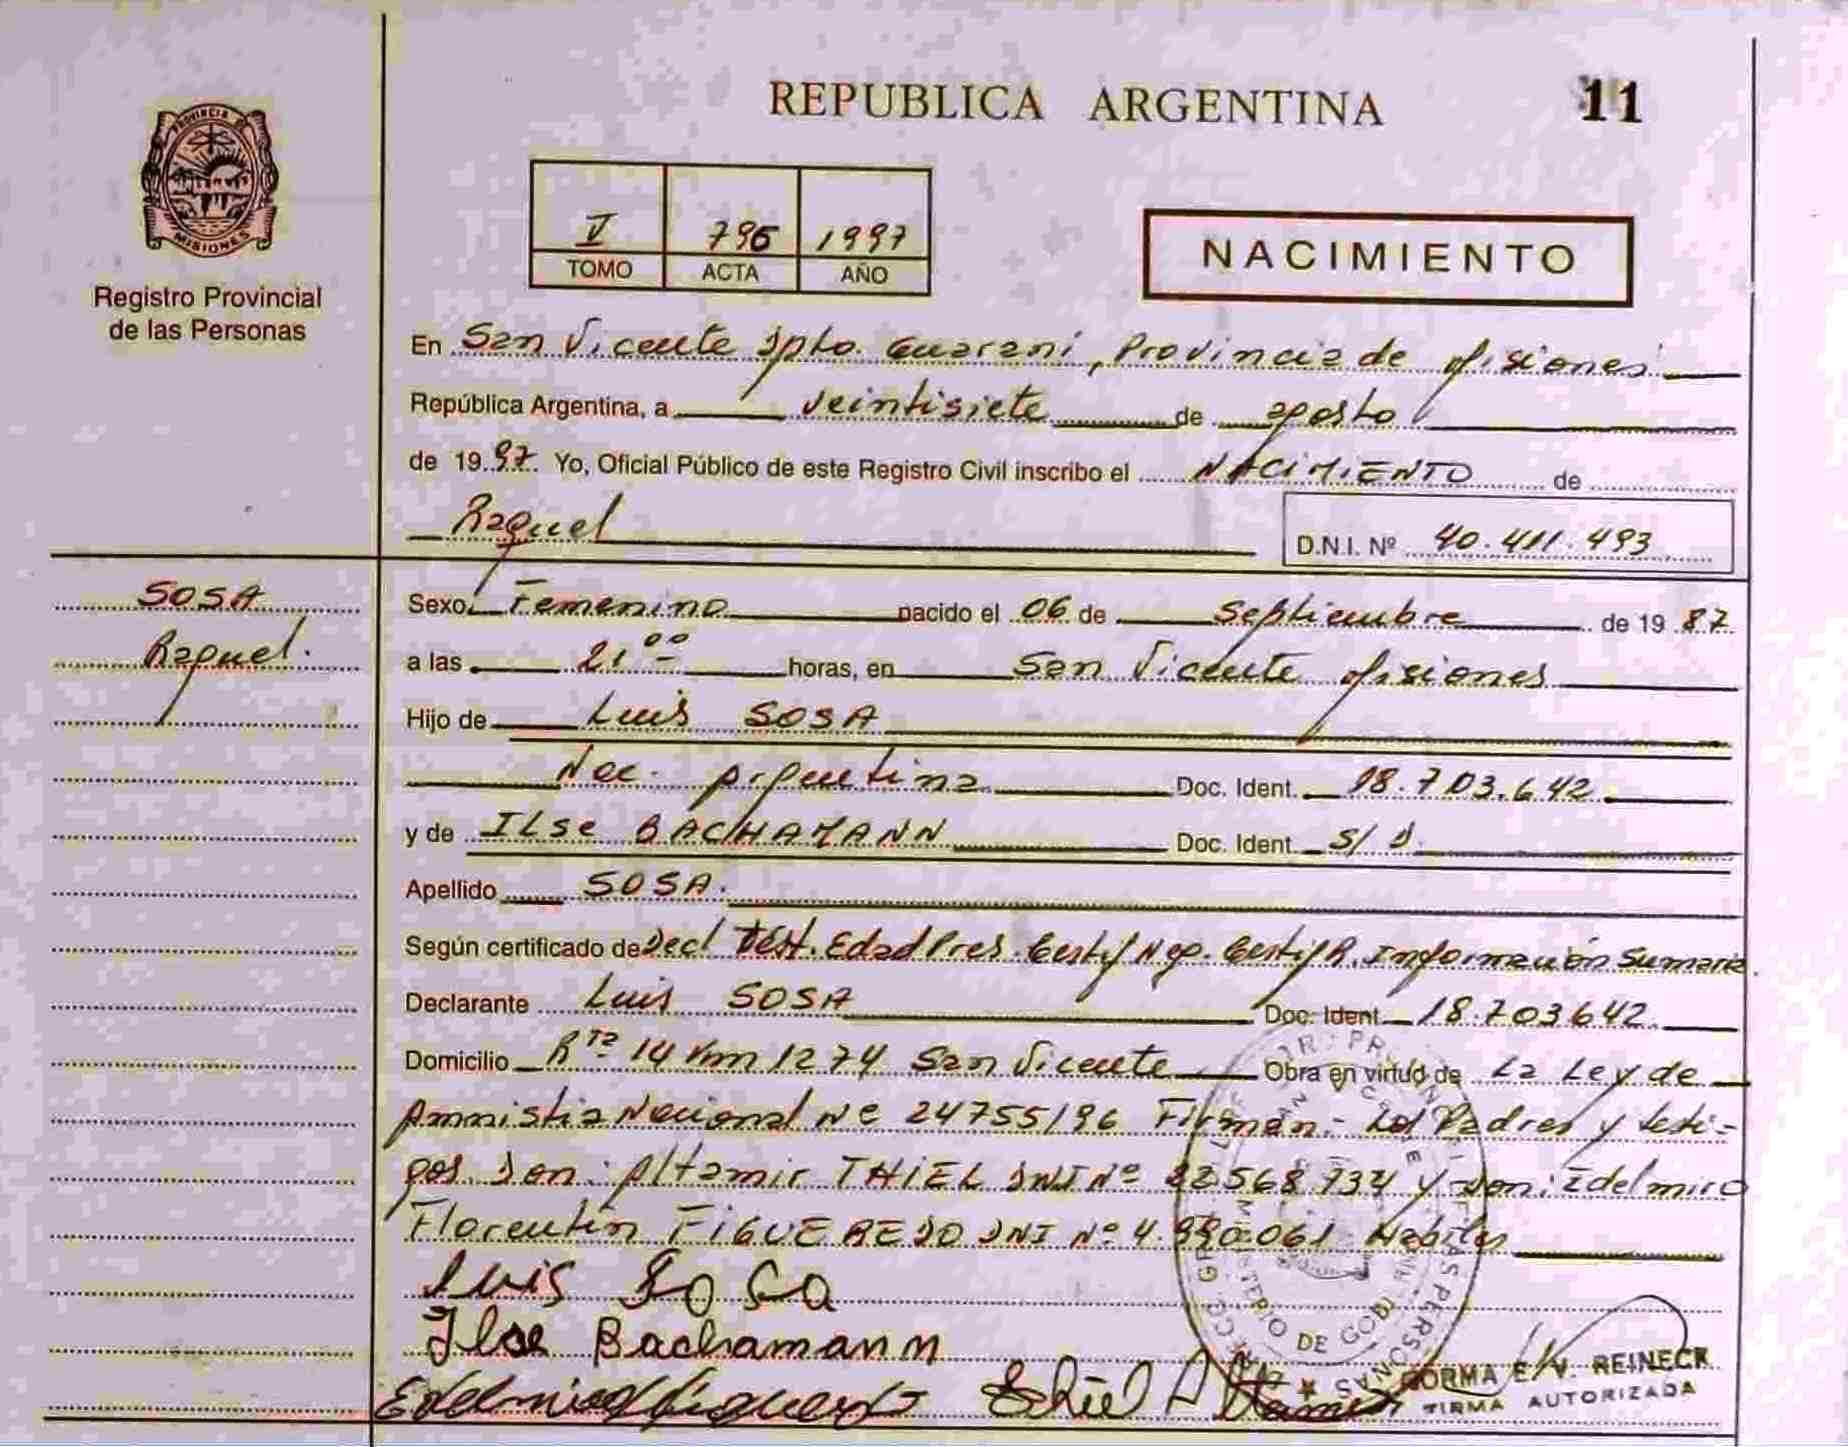 REPUBLICA ARGENTINA
11
PROVINCIA D
MISIONES
Registro Provincial
de las Personas
V 796 1997
TOMO ACTA AÑO
NACIMIENTO
En San Vicente Dpto. Guaraní, Provincia de Misiones
República Argentina, a veintisiete de agosto
de 1997. Yo, Oficial Público de este Registro Civil inscribo el NACIMIENTO de
Raquel
D.N.I. Nº 40.411.493
SOSA
Raquel.
Sexo Femenino nacido el 06 de Septiembre de 1987
a las 21 00 horas, en San Vicente Misiones
Hijo de Luis SOSA
Nac. Argentina Doc. Ident. 18.703.642
y de ILSe BACHAMANN Doc. Ident S/D.
Apellido SOSA.
Según certificado de Decl Test. Edad Pres. Certif Neg. Certif R. Información Sumaria.
Declarante Luis SOSA Doc. Ident. 18.703642.
Domicilio Rta 14 Km 1274 San Vicente Obra en virtud de La Ley de
Amnistia Nacional Nº 24755/96 Firman.- Los Padres y testi-
gos. Don: Altamir THIEL DNI Nº 22568734 y Don: Idelmiro
Florentin FIGUEREDO DNI Nº 4.990.061 Habiles
Luis Sosa
Ilse Bachamann
Thiel
MINISTERIO DE GOB
NORMA E. V. REINECK
FIRMA AUTORIZADA